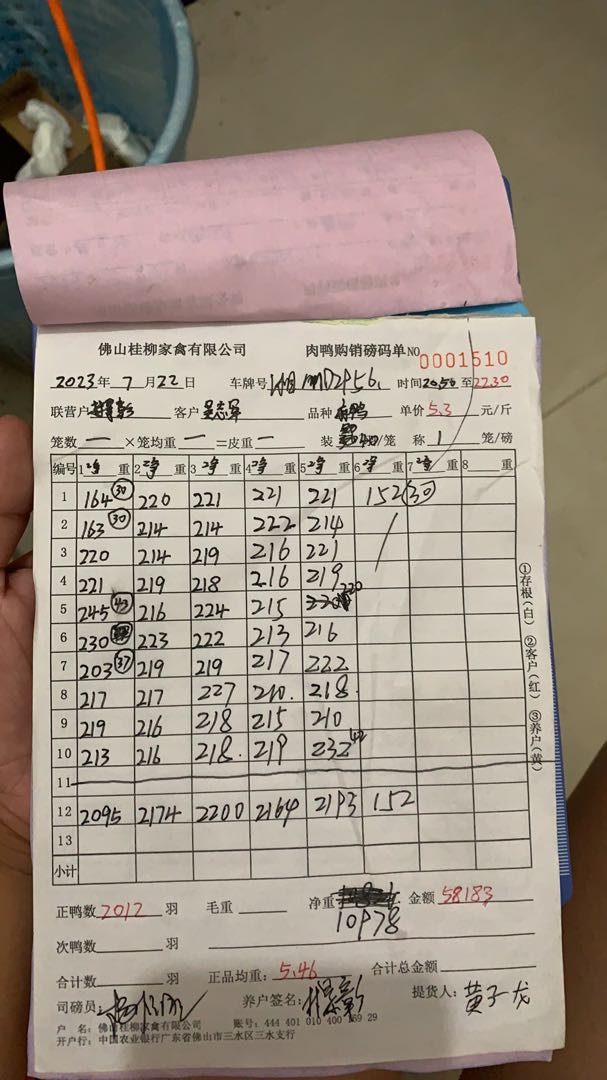 佛山桂柳家禽有限公司 肉鸭购销磅码单NO 0001510
2023年 7月22日 车牌号 时间20:50至22.30
联营户 客户 品种 鸭 单价5.3元/斤
笼数 一 ×笼均重 一 =皮重 一 装 /笼 称 1 笼/磅
编号 1净重 2净重 3净重 4净重 5净重 6净重 7净重 8 重
1 164(30) 220 221 221 221 152(30)
2 163(30) 214 214 222 214
3 220 214 219 216 221
4 221 219 218 216 219
5 245(43) 216 224 215 220
6 230 223 222 213 216
7 203(37) 219 219 217 222
8 217 217 227 210. 218.
9 219 216 218 215 210
10 213 216 218. 219 232
11
12 2095 2174 2200 2164 2193 152
13
小计
①存根(白) ②客户(红) ③养户(黄)
正鸭数2012羽 毛重 净重 10978 金额58183
次鸭数 羽
合计数 羽 正品均重:5.46 合计总金额
司磅员: 养户签名: 提货人:黄子龙
户 名:佛山桂柳家禽有限公司 账号:444 401 010 400 169 29
开户行:中国农业银行广东省佛山市三水区三水支行